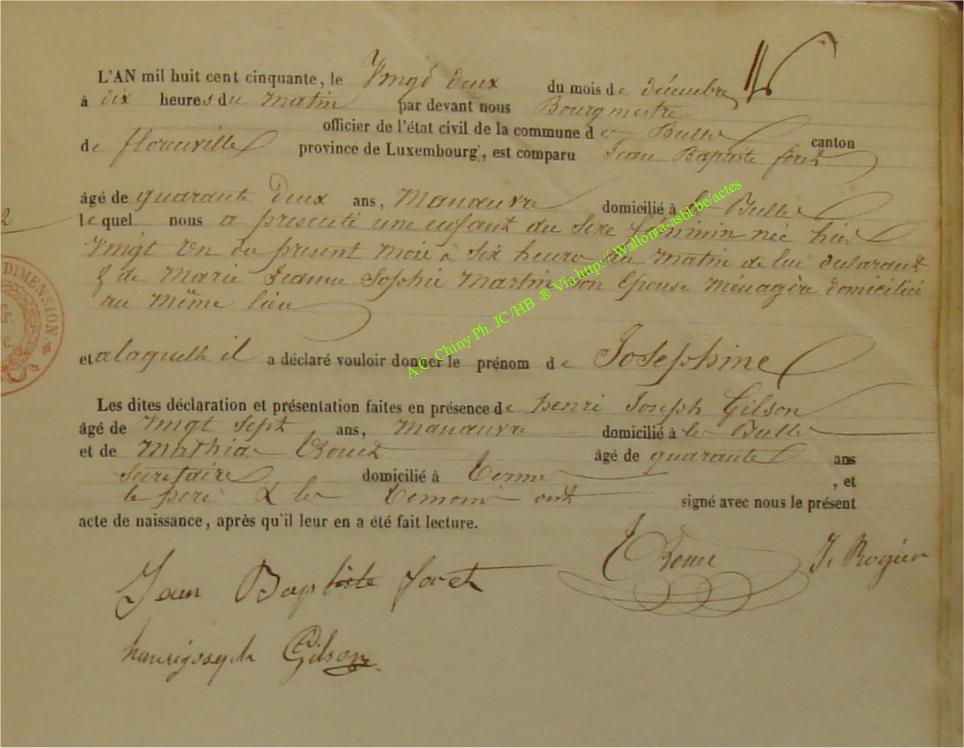 L'AN mil huit cent cinquante, le Vingt deux du mois de décembre
à dix heures du matin par devant nous Bourgmestre
officier de l'état civil de la commune de Bulle canton
de florenville province de Luxembourg, est comparu Jean Baptiste foret
âgé de quarante Deux ans, Manœuvre domicilié à Le Bulle
lequel nous a presenté une enfant du sexe feminin née hier
Vingt un du present mois à six heures du matin de lui declarant
& de Marie Jeanne Sophie Martin son Epouse Menagère domiciliée
au même lieu
et a laquelle il a déclaré vouloir donner le prénom de Josephine
Les dites déclaration et présentation faites en présence de henri Joseph Gilson
âgé de Vingt sept ans, manœuvre domicilié à le Bulle
et de Mathias âgé de quarante ans
secretaire domicilié à , et
le pere & les temoins ont signé avec nous le présent
acte de naissance, après qu'il leur en a été fait lecture.
J Rogier
Jean Baptiste foret
henri joseph Gilson
2
DIMENSION.
A.C. Chiny Ph. JC /HB ® Via http://Wallonia-asbl.be/actes